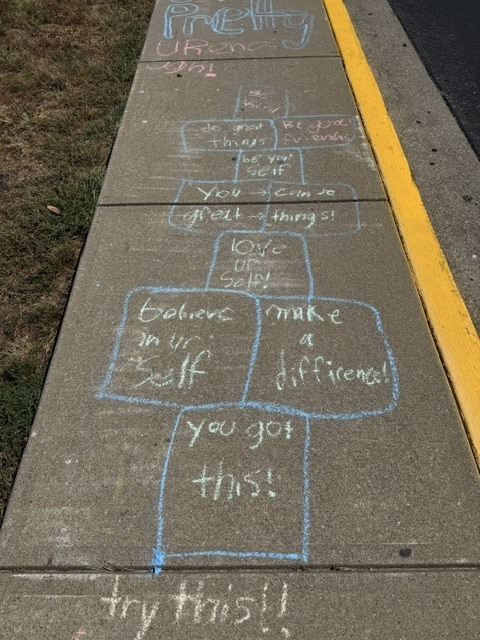 Pretty
do great
things
Be great
friends
be your
self
You → can do
great → things!
love
ur
Self!
believe
in ur
Self
make
a
difference!
you got
this!
try this!!